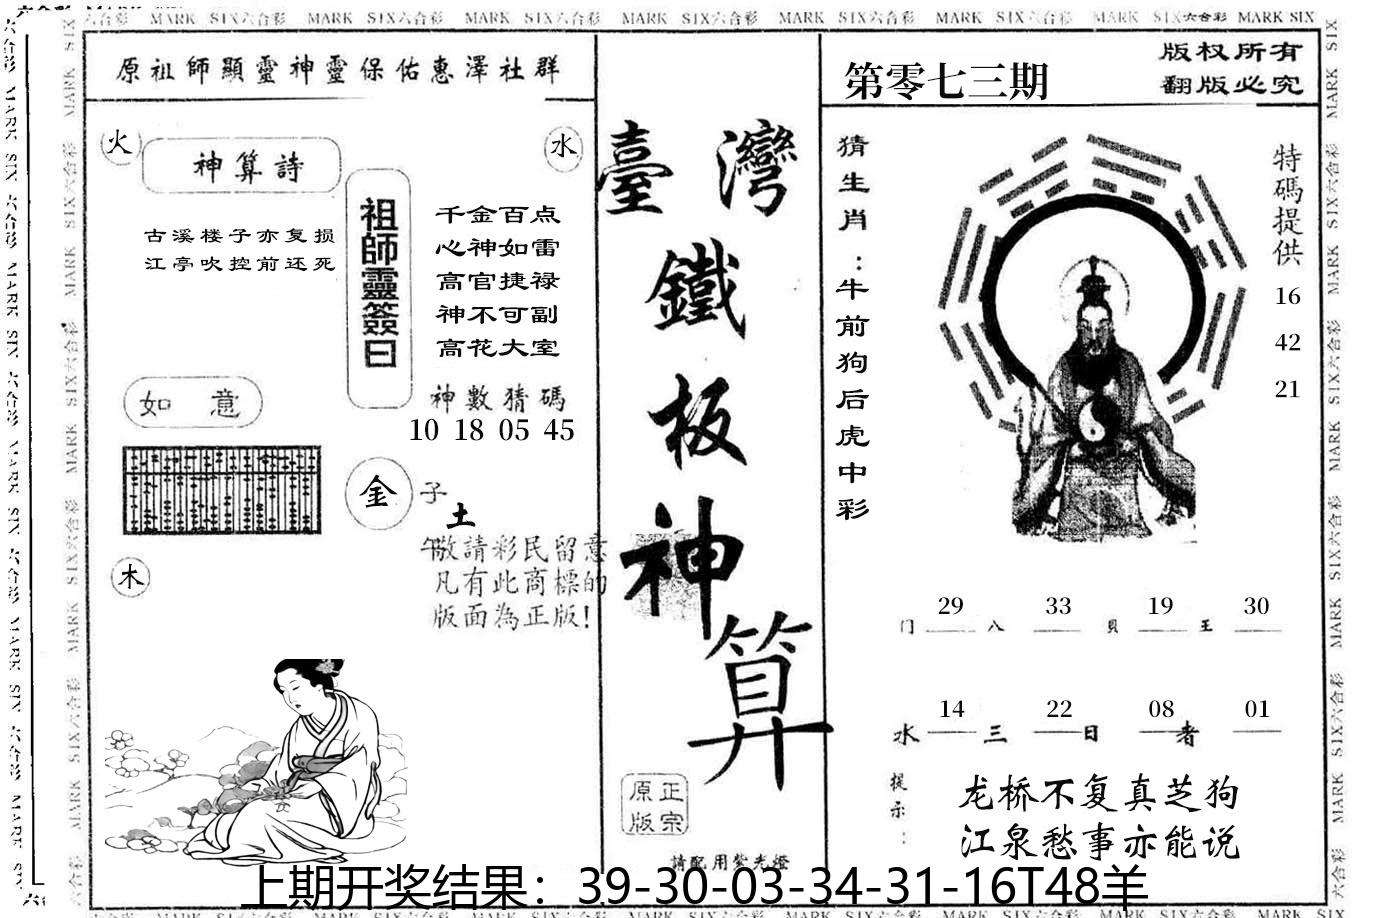 六合彩 MARK SIX六合彩 MARK SIX六合彩 MARK SIX六合彩 MARK SIX六合彩 MARK SIX六合彩 MARK SIX六合彩 MARK SIX六合彩 MARK SIX
原祖師顯靈神靈保佑惠澤社群
火
水
神算詩
古溪楼子亦复损
江亭吹控前还死
祖師靈簽曰
千金百点
心神如雷
高官捷禄
神不可副
高花大室
神數猜碼
10 18 05 45
如意
金
子
土
午
木
敬請彩民留意
凡有此商標的
版面為正版!
臺灣
鐵
板
神
算
正宗
原版
請配用紫光燈
第零七三期
版权所有
翻版必究
猜生肖:牛前狗后虎中彩
特碼提供
16
42
21
29 33 19 30
门 八 貝 王
14 22 08 01
水 三 日 者
提示:
龙桥不复真芝狗
江泉愁事亦能说
上期开奖结果：39-30-03-34-31-16T48羊